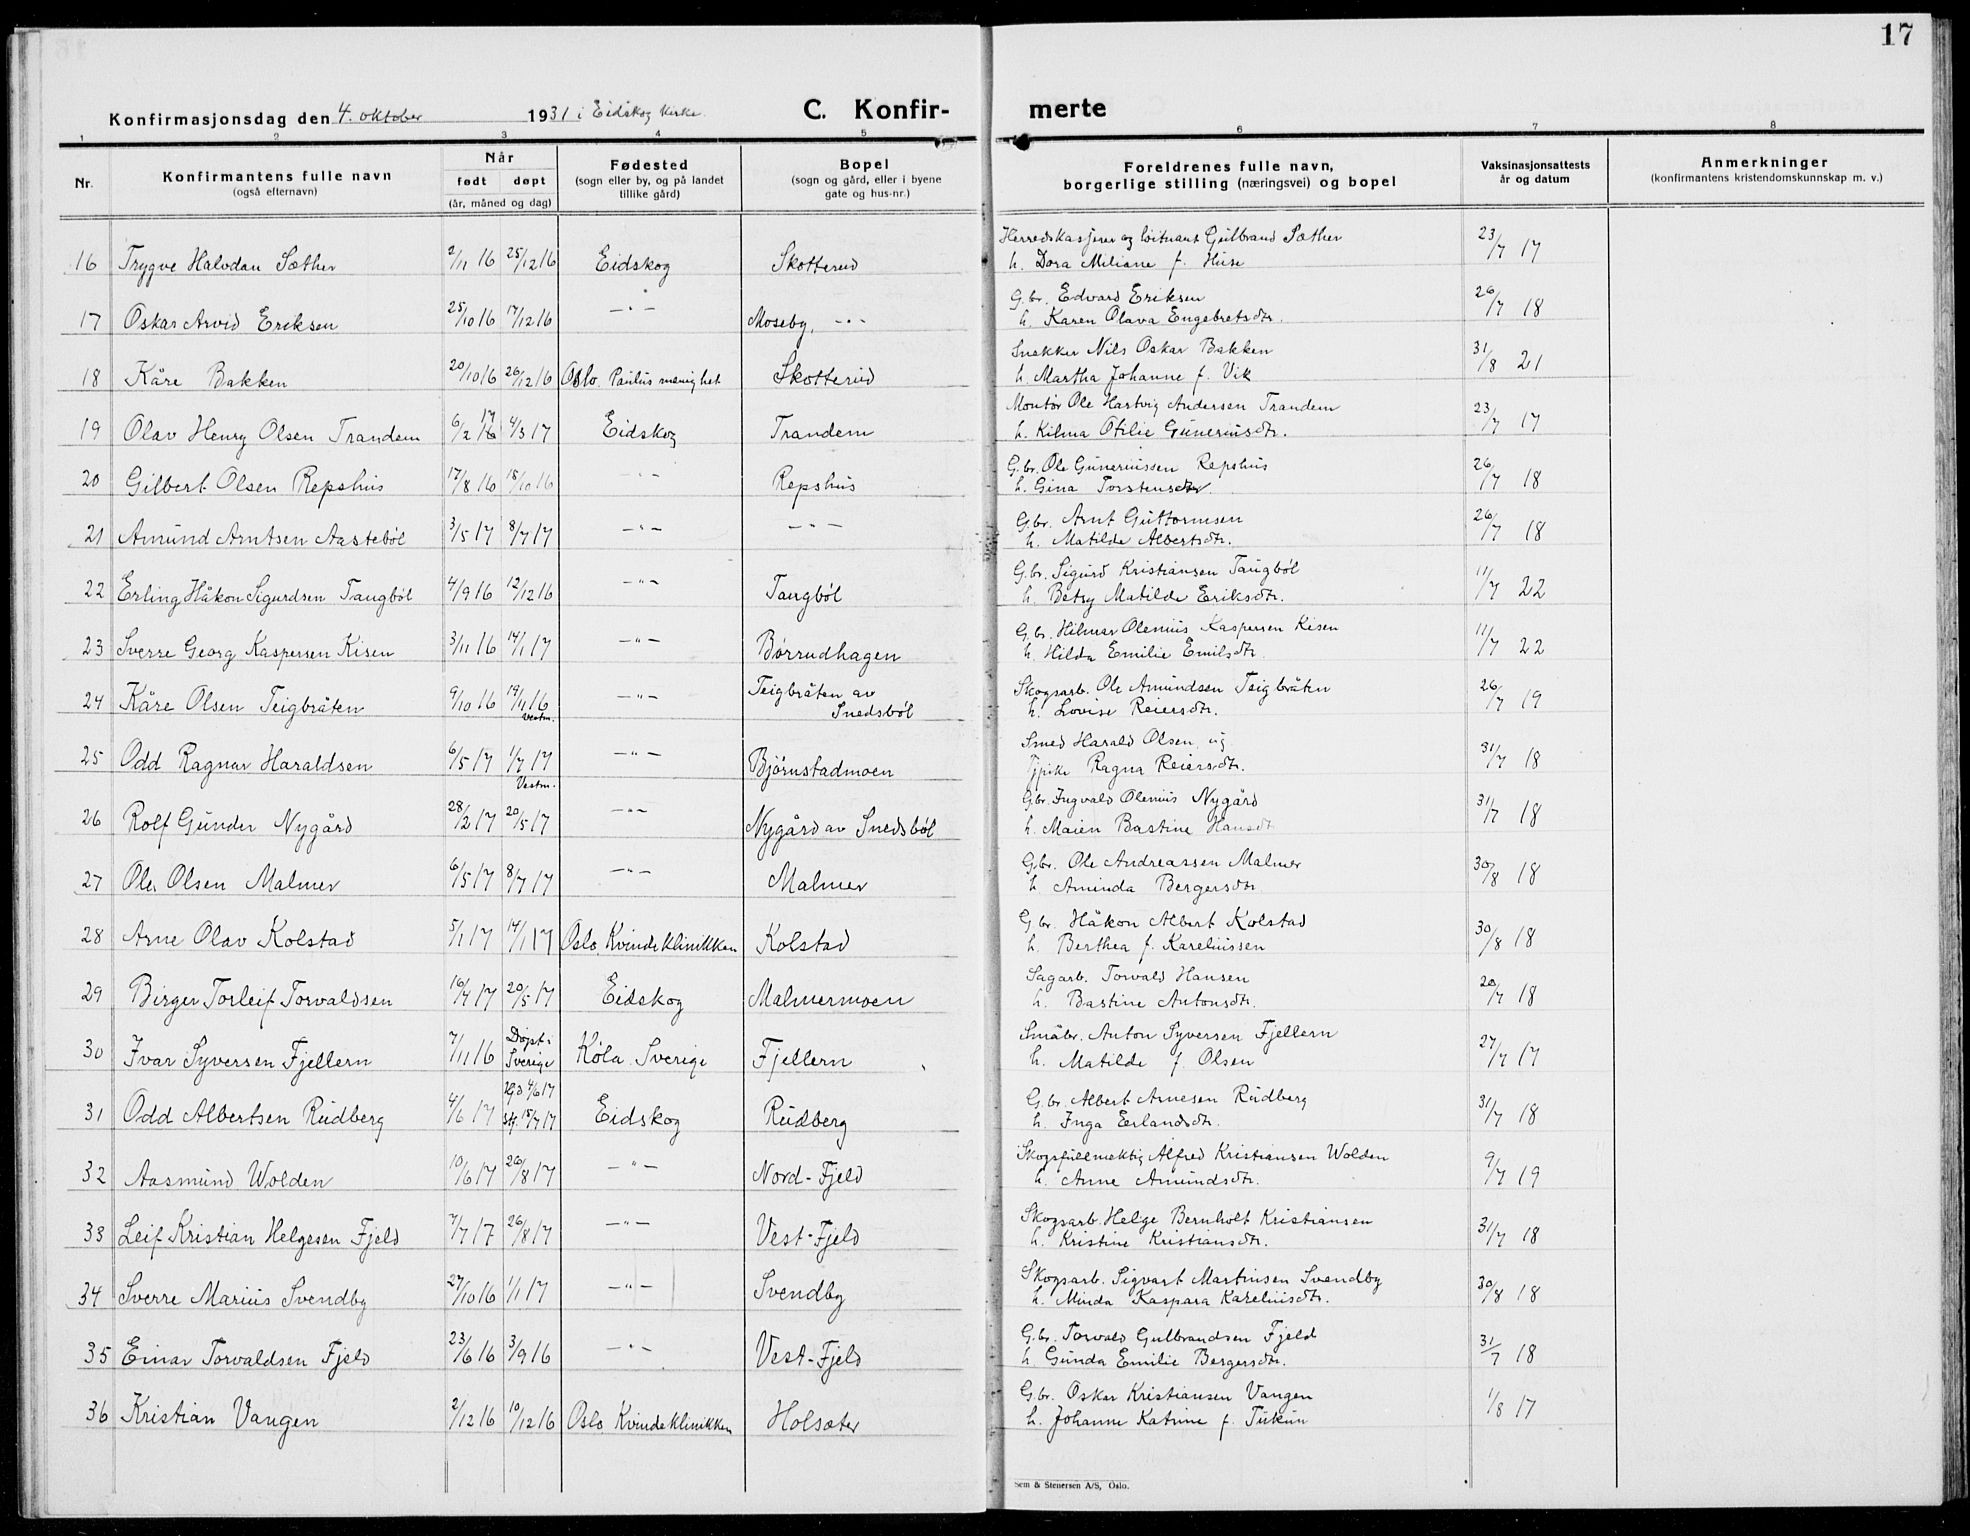 17
Konfirmasjonsdag den 4. oktober 1931 i Eidskog kirke.
C. Konfir- merte
1 2 3 4 5 6 7 8
Nr. Konfirmantens fulle navn (også efternavn) Når født døpt (år, måned og dag) Fødested (sogn eller by, og på landet tillike gård) Bopel (sogn og gård, eller i byene gate og hus-nr.) Foreldrenes fulle navn, borgerlige stilling (næringsvei) og bopel Vaksinasjonsattests år og datum Anmerkninger (konfirmantens kristendomskunnskap m. v.)
16 Trygve Halvdan Sæther 2/11 16 25/12 16 Eidskog Skotterud Herredskasjerer og løitnant Gulbrand Sæther 23/7 17
h. Dora Miliane f. Huse
17 Oskar Arvid Eriksen 25/10 16 17/12 16 -"- Moseby, -"- G.br. Edvard Eriksen 26/7 18
h. Karen Olava Engebretsdtr.
18 Kåre Bakken 20/10 16 26/12 16 Oslo. Paulus menighet Skotterud Snekker Nils Oskar Bakken 31/8 21
h. Martha Johanne f. Vik
19 Olav Henry Olsen Trandem 6/2 16 17 4/3 17 Eidskog Trandem Montør Ole Hartvig Andersen Trandem 23/7 17
h. Kilma Otilie Guneriusdtr.
20 Gilbert Olsen Repshus 17/8 16 15/10 16 -"- Repshus G.br. Ole Guneriussen Repshus 26/7 18
h. Gina Torstensdtr.
21 Amund Arntsen Aastebøl 3/5 17 8/7 17 -"- -"- G.br. Arnt Guttormsen 26/7 18
h. Matilde Albertsdtr.
22 Erling Håkon Sigurdsen Taugbøl 4/9 16 12/12 16 -"- Taugbøl G.br. Sigurd Kristiansen Taugbøl 11/7 22
h. Betsy Matilde Eriksdtr.
23 Sverre Georg Kaspersen Kisen 3/11 16 14/1 17 -"- Børrudhagen G.br. Hilmar Olenius Kaspersen Kisen 11/7 22
h. Hilda Emilie Emilsdtr.
24 Kåre Olsen Teigbråten 9/10 16 19/11 16 Vestm. -"- Teigbråten av Snedsbøl Skogsarb. Ole Amundsen Teigbråten 26/7 19
h. Lovise Reiersdtr.
25 Odd Ragnar Haraldsen 6/5 17 1/7 17 Vestm. -"- Bjørnstadmoen Smed Harald Olsen og 31/7 18
pike Ragna Reiersdtr.
26 Rolf Gunder Nygård 28/2 17 20/5 17 -"- Nygård av Snedsbøl G.br. Ingvald Olenius Nygård 31/7 18
h. Maien Bastine Hansdt
27 Ole Olsen Malmer 6/5 17 8/7 17 -"- Malmer G.br. Ole Andreassen Malmer 30/8 18
h. Aminda Bergersdtr.
28 Arne Olav Kolstad 5/1 17 14/1 17 Oslo, Kvindeklinikken Kolstad G.br. Håkon Albert Kolstad 30/8 18
h. Berthea f. Kareliussen
29 Birger Torleif Torvaldsen 16/4 17 20/5 17 Eidskog Malmermoen Sagarb. Torvald Hansen 20/7 18
h. Bastine Antonsdtr.
30 Ivar Syversen Fjellern 7/11 16 Døpt i Sverige Köla. Sverige Fjellern Småbr. Anton Syversen Fjellern 27/7 17
h. Matilde f. Olsen
31 Odd Albertsen Rudberg 4/6 17 Hjd 4/6 17 Stf. 15/7 17 Eidskog Rudberg G.br. Albert Arnesen Rudberg 31/7 18
h. Inga Erlandsdtr.
32 Aasmund Wolden 10/6 17 26/8 17 -"- Nord-Fjeld Skogsfullmektig Alfred Kristiansen Wolden 9/7 19
h. Anne Amundsdtr.
33 Leif Kristian Helgesen Fjeld 7/7 17 26/8 17 -"- Vest-Fjeld Skogsarb. Helge Bernholt Kristiansen 31/7 18
h. Kristine Kristiansdtr.
34 Sverre Marius Svendby 27/10 16 1/1 17 -"- Svendby Skogsarb. Sigvart Martinsen Svendby 30/8 18
h. Minda Kaspara Kareliusdtr.
35 Einar Torvaldsen Fjeld 23/6 16 3/9 16 -"- Vest-Fjeld G.br. Torvald Gulbrandsen Fjeld 31/7 18
h. Gunda Emilie Bergersdtr.
36 Kristian Vangen 2/12 16 10/12 16 Oslo Kvindeklinikken Holsæter G.br. Oskar Kristiansen Vangen 1/8 17
h. Johanne Katrine f. Tukun
Sem & Stenersen A/S, Oslo.